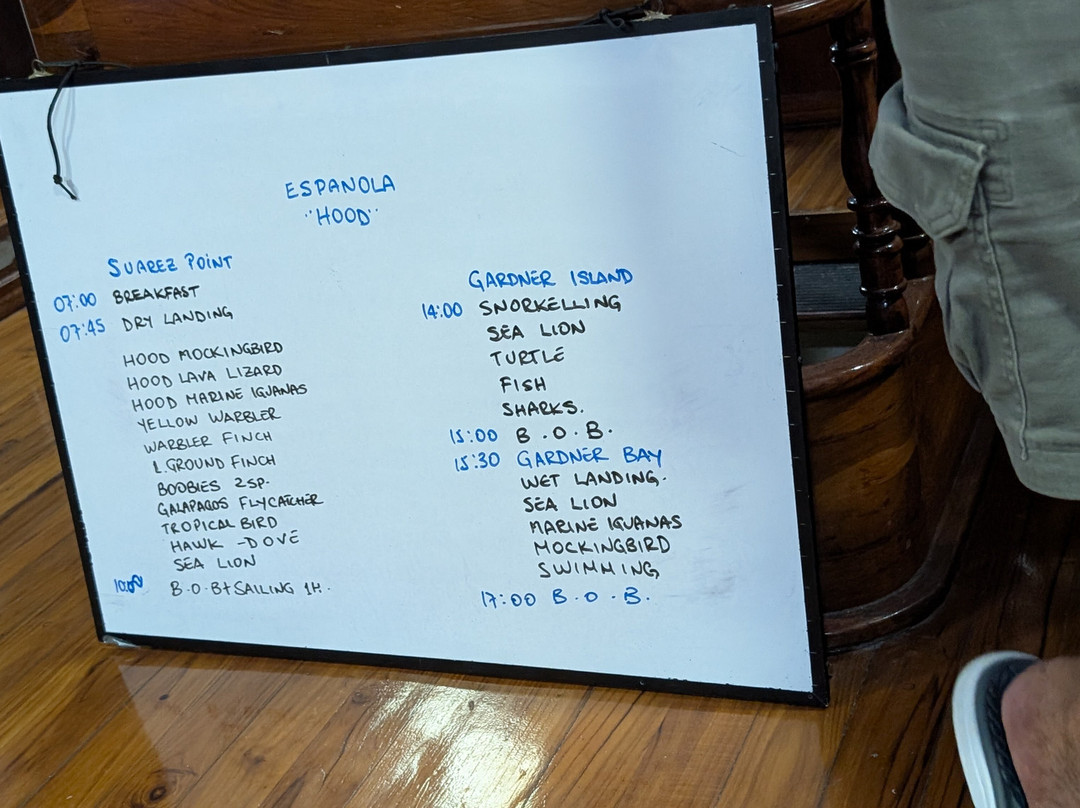 ESPANOLA
"HOOD"
SUAREZ POINT
07:00 BREAKFAST
07:45 DRY LANDING
HOOD MOCKINGBIRD
HOOD LAVA LIZARD
HOOD MARINE IGUANAS
YELLOW WARBLER
WARBLER FINCH
L.GROUND FINCH
BOOBIES 2SP.
GALAPAGOS FLYCATCHER
TROPICAL BIRD
HAWK -DOVE
SEA LION
B.O.B+SAILING 1H.
GARDNER ISLAND
14:00 SNORKELLING
SEA LION
TURTLE
FISH
SHARKS.
15:00 B.O.B.
15:30 GARDNER BAY
WET LANDING.
SEA LION
MARINE IGUANAS
MOCKINGBIRD
SWIMMING
17:00 B.O.B.